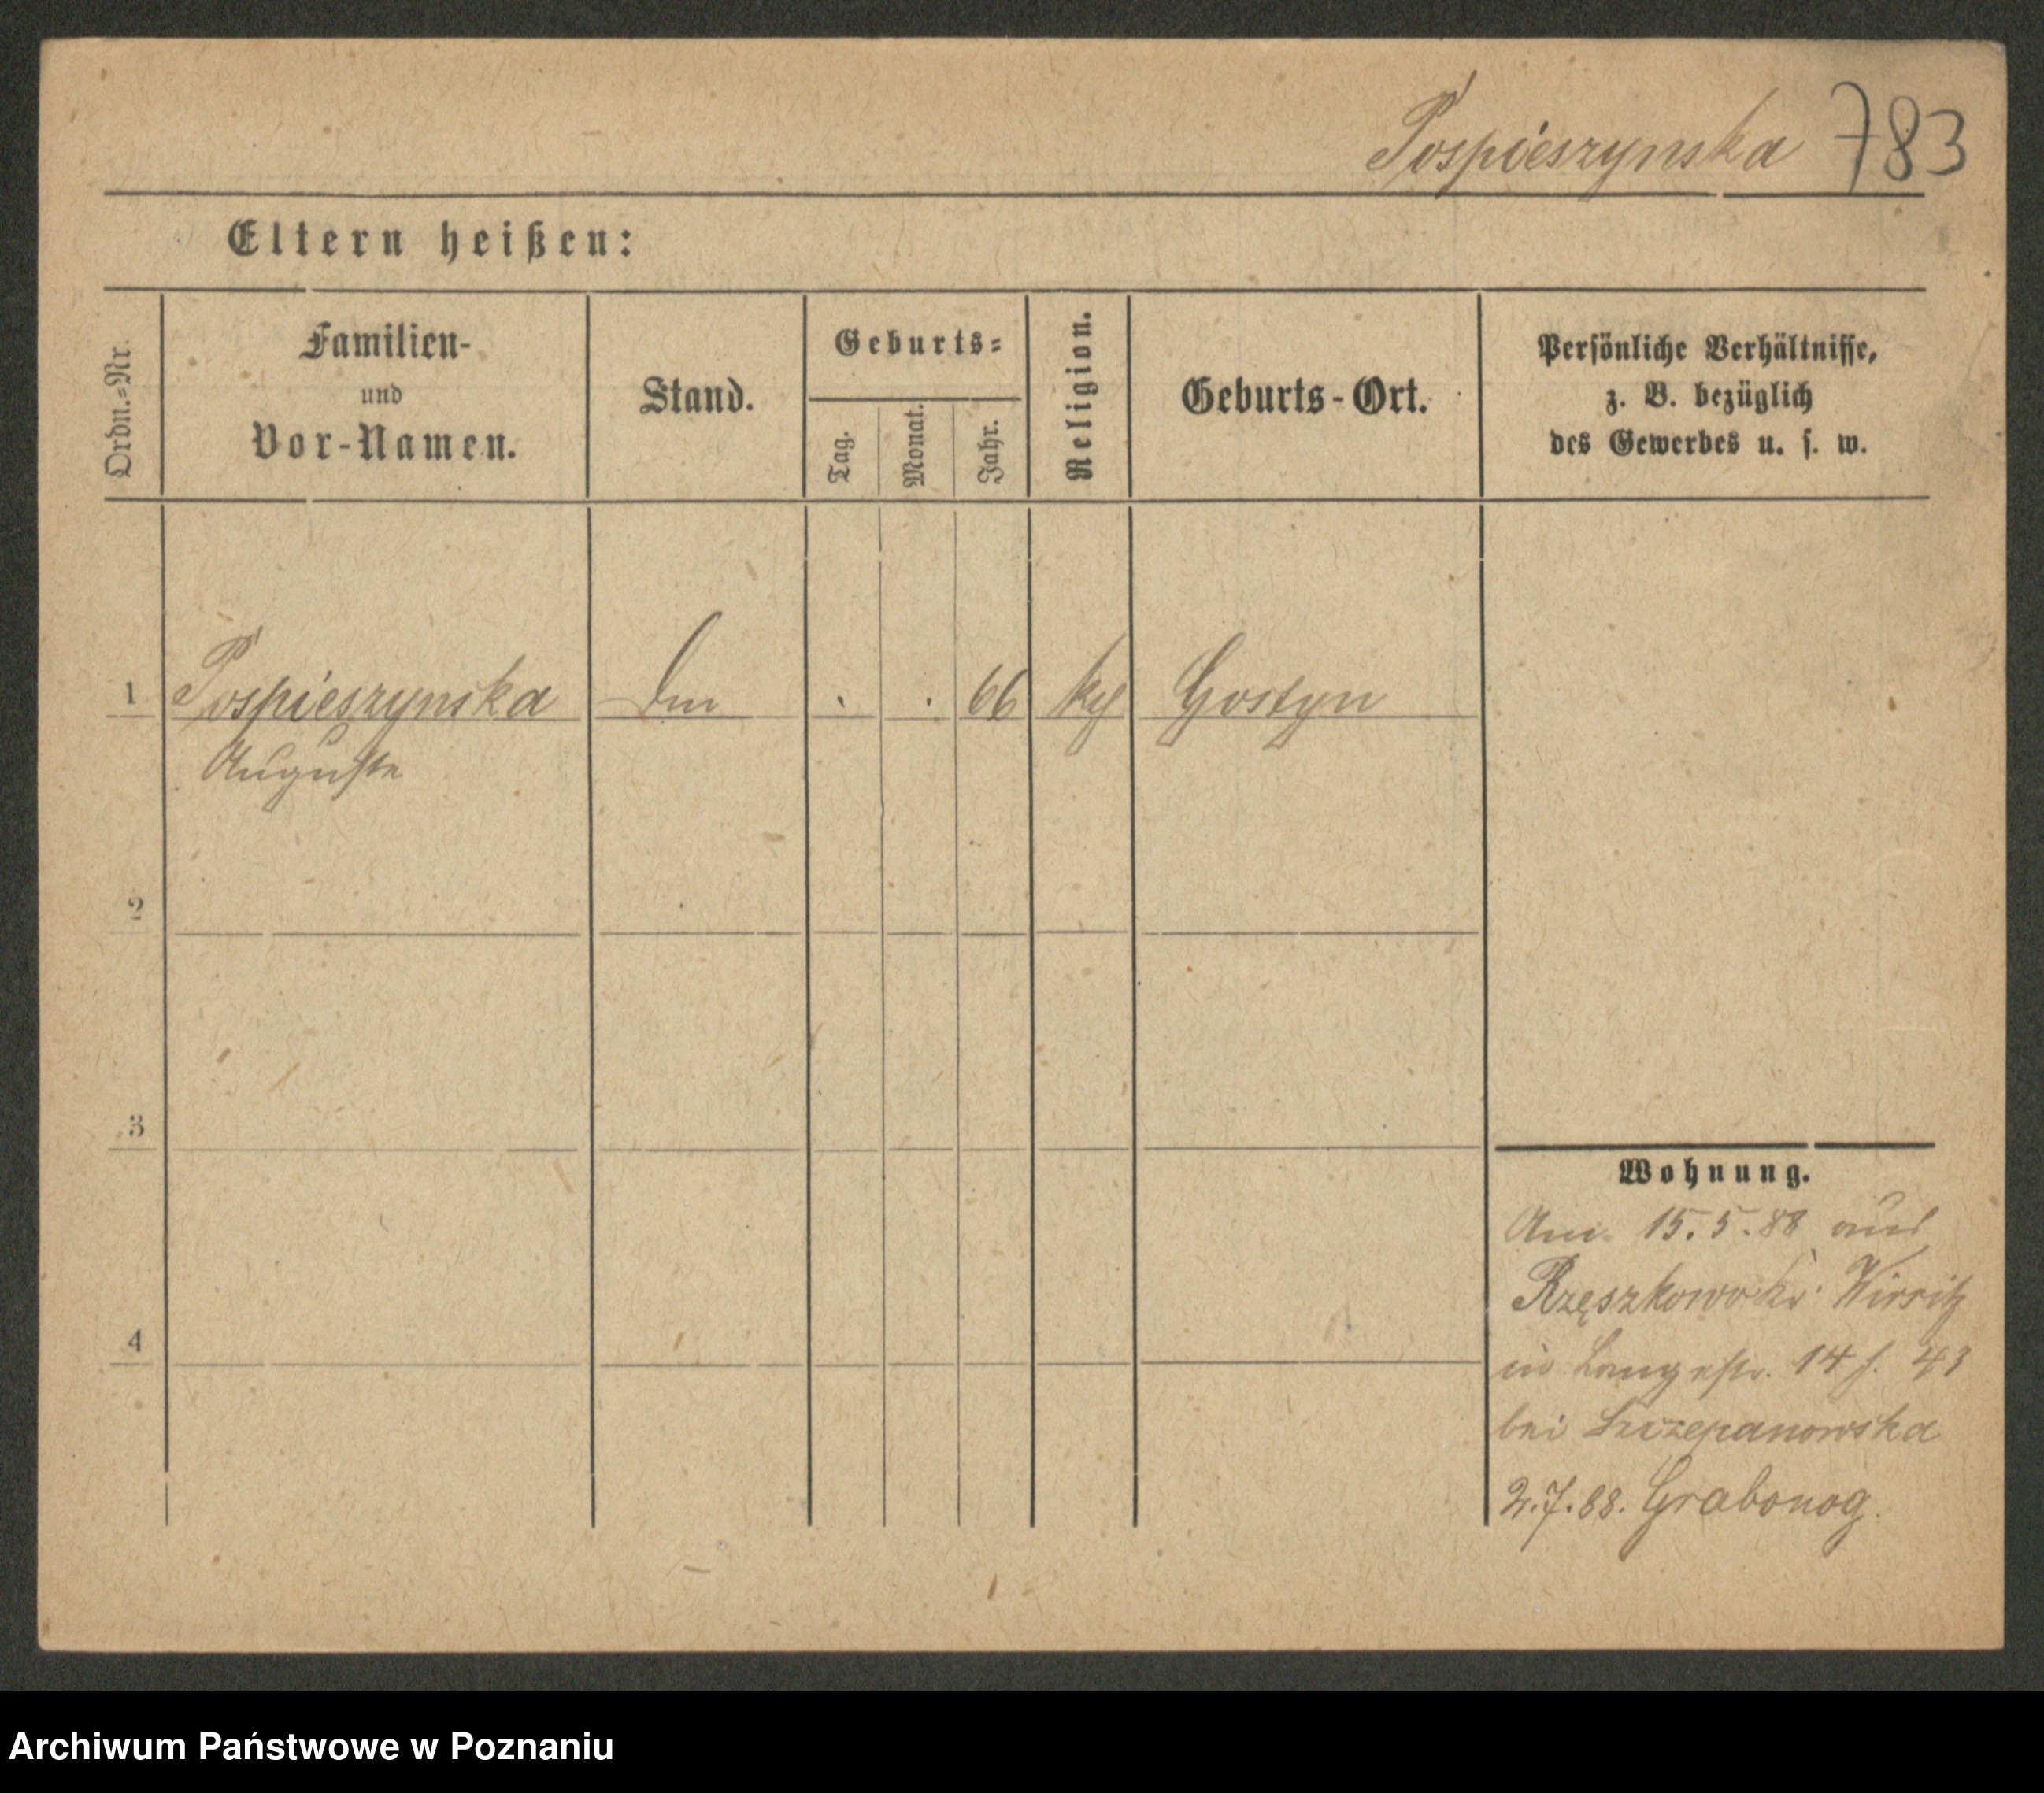 Pospieszynska 783
Eltern heißen:
Ordn.=Nr.
Familien-
und
Vor-Namen.
Stand.
Geburts=
Tag.
Monat.
Jahr.
Religion.
Geburts-Ort.
Persönliche Verhältnisse,
z. B. bezüglich
des Gewerbes u. s. w.
1 Pospieszynska . . 66 Gostyn
Auguste
2
3
4
Wohnung.
Am 15.5.88 aus
Rzęszkowo Kr. Wirsitz
in Langestr. 14 43
bei Szczepanowska
2.7.88. Grabonog.
Archiwum Państwowe w Poznaniu